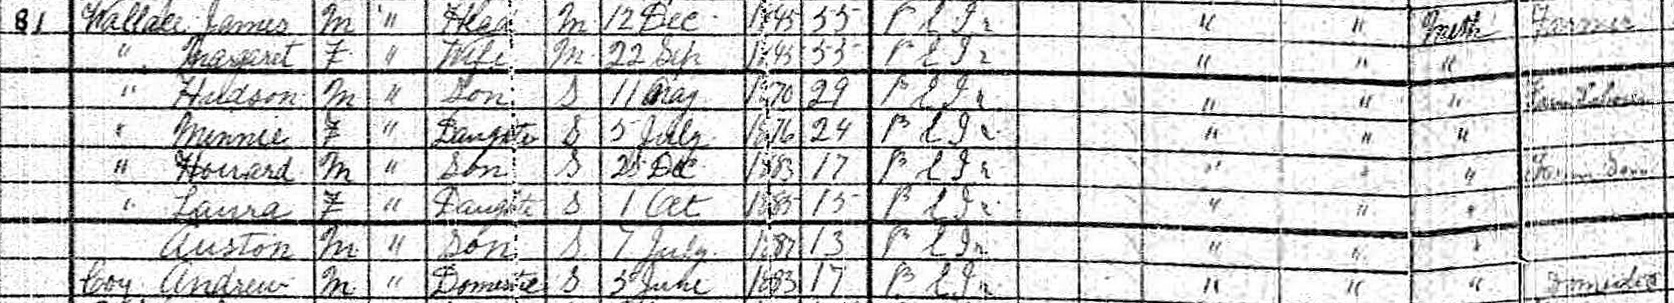 81 Wallace James M " Head M 12 Dec 1845 55 P E I r " " Meth Farmer
" Margaret F " Wife M 22 Sep 1845 55 P E I r " " "
" Hudson M " Son S 11 May 1870 29 P E I r " " "
" Minnie F " Daughter S 5 July 1876 24 P E I r " " "
" Howard M " Son S 25 Dec 1883 17 P E I r " " " Farm Son
" Laura F " Daughter S 1 Oct 1885 15 P E I r " " "
Auston M " Son S 7 July 1887 13 P E I r " " "
Coy Andrew M " Domestic S 5 June 1883 17 P E I r " " " Domestic